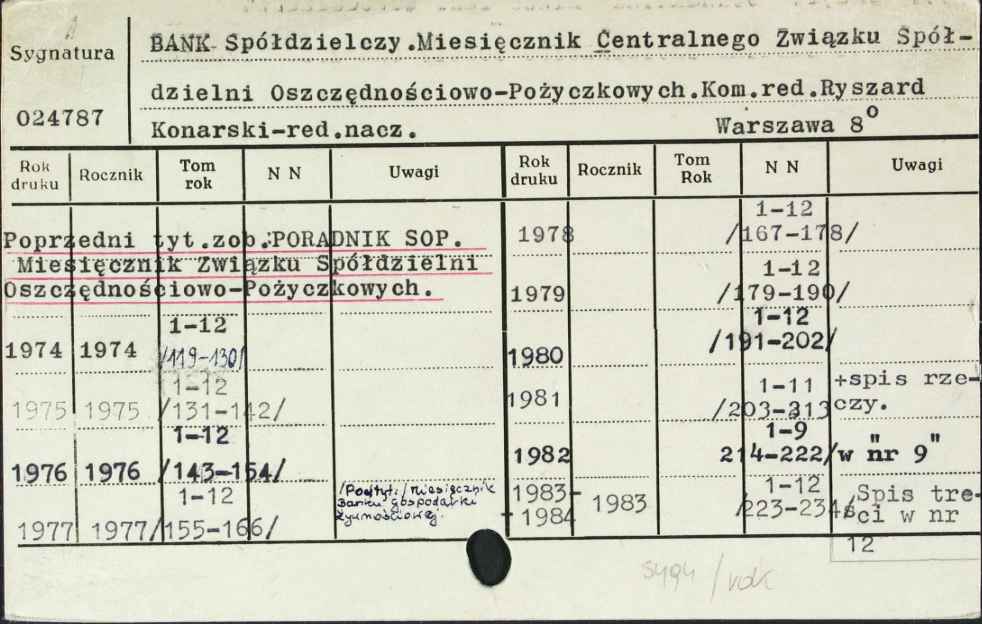 Sygnatura
024787
BANK Spółdzielczy.Miesięcznik Centralnego Związku Spół-
dzielni Oszczędnościowo-Pożyczkowych.Kom.red.Ryszard
Konarski-red.nacz. Warszawa 8°
Rok druku Rocznik Tom rok N N Uwagi
Poprzedni tyt.zob.:PORADNIK SOP.
Miesięcznik Związku Spółdzielni
Oszczędnościowo-Pożyczkowych.
1-12
1974 1974 /119-130/
1-12
1975 1975 /131-142/
1-12
1976 1976 /143-154/
1-12
1977 1977 /155-166/
/Podtyt./Miesięcznik
Banku gospodarki
żywnościowej.
Rok druku Rocznik Tom Rok N N Uwagi
1-12
1978 /167-178/
1-12
1979 /179-190/
1-12
1980 /191-202/
1-11 +spis rze-
1981 /203-213 czy.
1-9
1982 214-222/ w "nr 9"
1983- 1983 1-12 Spis tre-
1984 /223-234/ ści w nr
12
sygn/rok